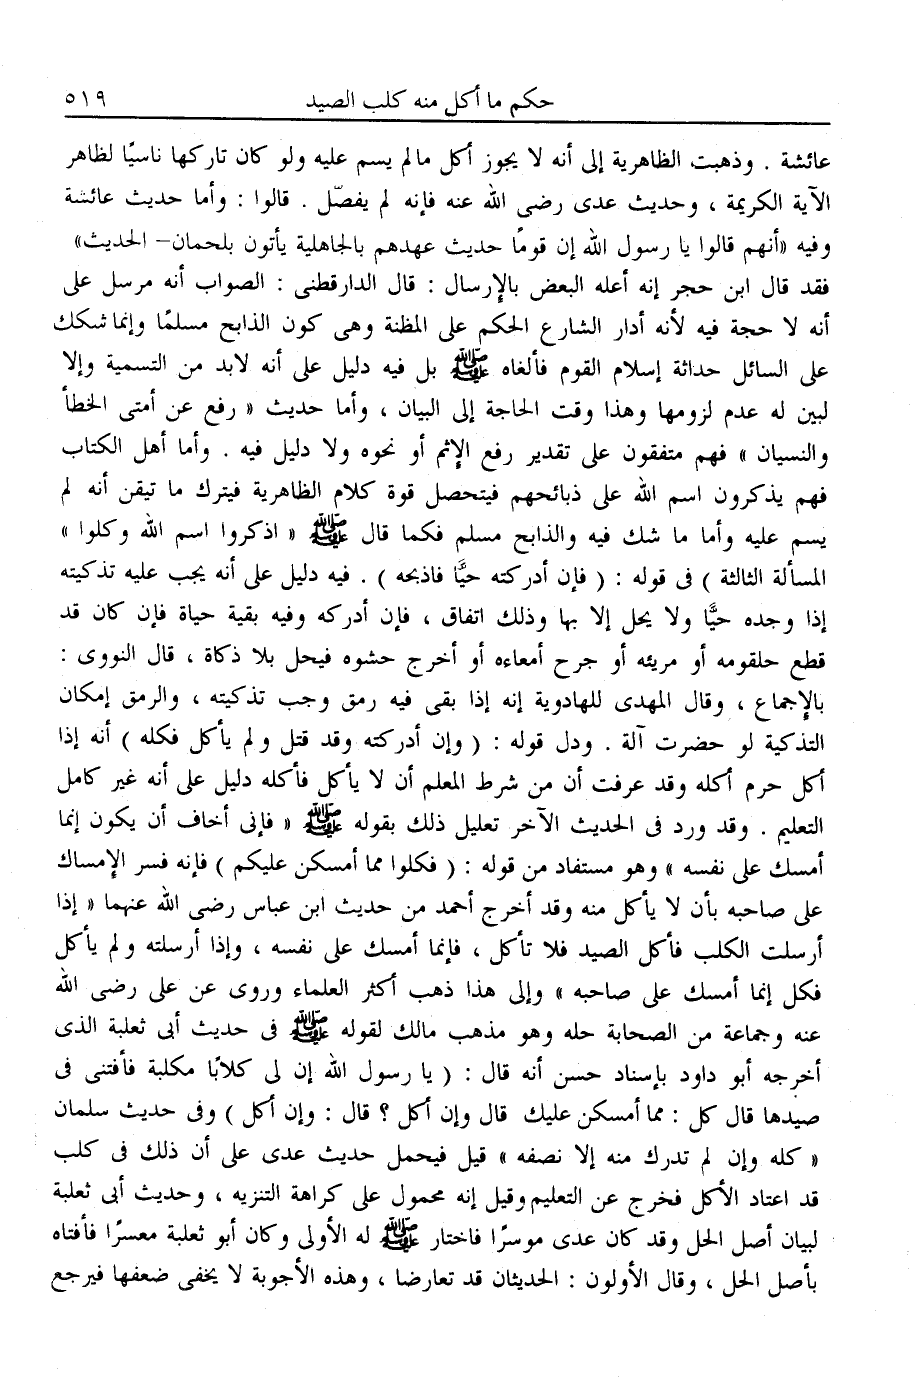 حكم ما أكل منه كلب الصيد ٥١٩
عائشة . وذهبت الظاهرية إلى أنه لا يجوز أكل مالم يسم عليه ولو كان تاركها ناسيًا لظاهر
الآية الكريمة ، وحديث عدى رضى الله عنه فإنه لم يفصّل . قالوا : وأما حديث عائشة
وفيه «أنهم قالوا يا رسول الله إن قومًا حديث عهدهم بالجاهلية يأتون بلحمان– الحديث»
فقد قال ابن حجر إنه أعله البعض بالإرسال : قال الدارقطنى : الصواب أنه مرسل على
أنه لا حجة فيه لأنه أدار الشارع الحكم على المظنة وهى كون الذابح مسلمًا وإنما شكك
على السائل حداثة إسلام القوم فألغاه ﷺ بل فيه دليل على أنه لابد من التسمية وإلا
لبين له عدم لزومها وهذا وقت الحاجة إلى البيان ، وأما حديث « رفع عن أمتى الخطأ
والنسيان » فهم متفقون على تقدير رفع الإثم أو نحوه ولا دليل فيه . وأما أهل الكتاب
فهم يذكرون اسم الله على ذبائحهم فيتحصل قوة كلام الظاهرية فيترك ما تيقن أنه لم
يسم عليه وأما ما شك فيه والذابح مسلم فكما قال ﷺ « اذكروا اسم الله وكلوا »
المسألة الثالثة ) فى قوله : ( فإن أدركته حيًّا فاذبحه ) . فيه دليل على أنه يجب عليه تذكيته
إذا وجده حيًّا ولا يحل إلا بها وذلك اتفاق ، فإن أدركه وفيه بقية حياة فإن كان قد
قطع حلقومه أو مريئه أو جرح أمعاءه أو أخرج حشوه فيحل بلا ذكاة ، قال النووى :
بالإجماع ، وقال المهدى للهادوية إنه إذا بقى فيه رمق وجب تذكيته ، والرمق إمكان
التذكية لو حضرت آلة . ودل قوله : ( وإن أدركته وقد قتل ولم يأكل فكله ) أنه إذا
أكل حرم أكله وقد عرفت أن من شرط المعلم أن لا يأكل فأكله دليل على أنه غير كامل
التعليم . وقد ورد فى الحديث الآخر تعليل ذلك بقوله ﷺ « فإنى أخاف أن يكون إنما
أمسك على نفسه » وهو مستفاد من قوله : ( فكلوا مما أمسكن عليكم ) فإنه فسر الإمساك
على صاحبه بأن لا يأكل منه وقد أخرج أحمد من حديث ابن عباس رضى الله عنهما « إذا
أرسلت الكلب فأكل الصيد فلا تأكل ، فإنما أمسك على نفسه ، وإذا أرسلته ولم يأكل
فكل إنما أمسك على صاحبه » وإلى هذا ذهب أكثر العلماء وروى عن على رضى الله
عنه وجماعة من الصحابة حله وهو مذهب مالك لقوله ﷺ فى حديث أبى ثعلبة الذى
أخرجه أبو داود بإسناد حسن أنه قال : ( يا رسول الله إن لى كلابًا مكلبة فأفتنى فى
صيدها قال كل : مما أمسكن عليك قال وإن أكل ؟ قال : وإن أكل ) وفى حديث سلمان
« كله وإن لم تدرك منه إلا نصفه » قيل فيحمل حديث عدى على أن ذلك فى كلب
قد اعتاد الأكل فخرج عن التعليم وقيل إنه محمول على كراهة التنزيه ، وحديث أبى ثعلبة
لبيان أصل الحل وقد كان عدى موسرًا فاختار ﷺ له الأولى وكان أبو ثعلبة معسرًا فأفتاه
بأصل الحل ، وقال الأولون : الحديثان قد تعارضا ، وهذه الأجوبة لا يخفى ضعفها فيرجع